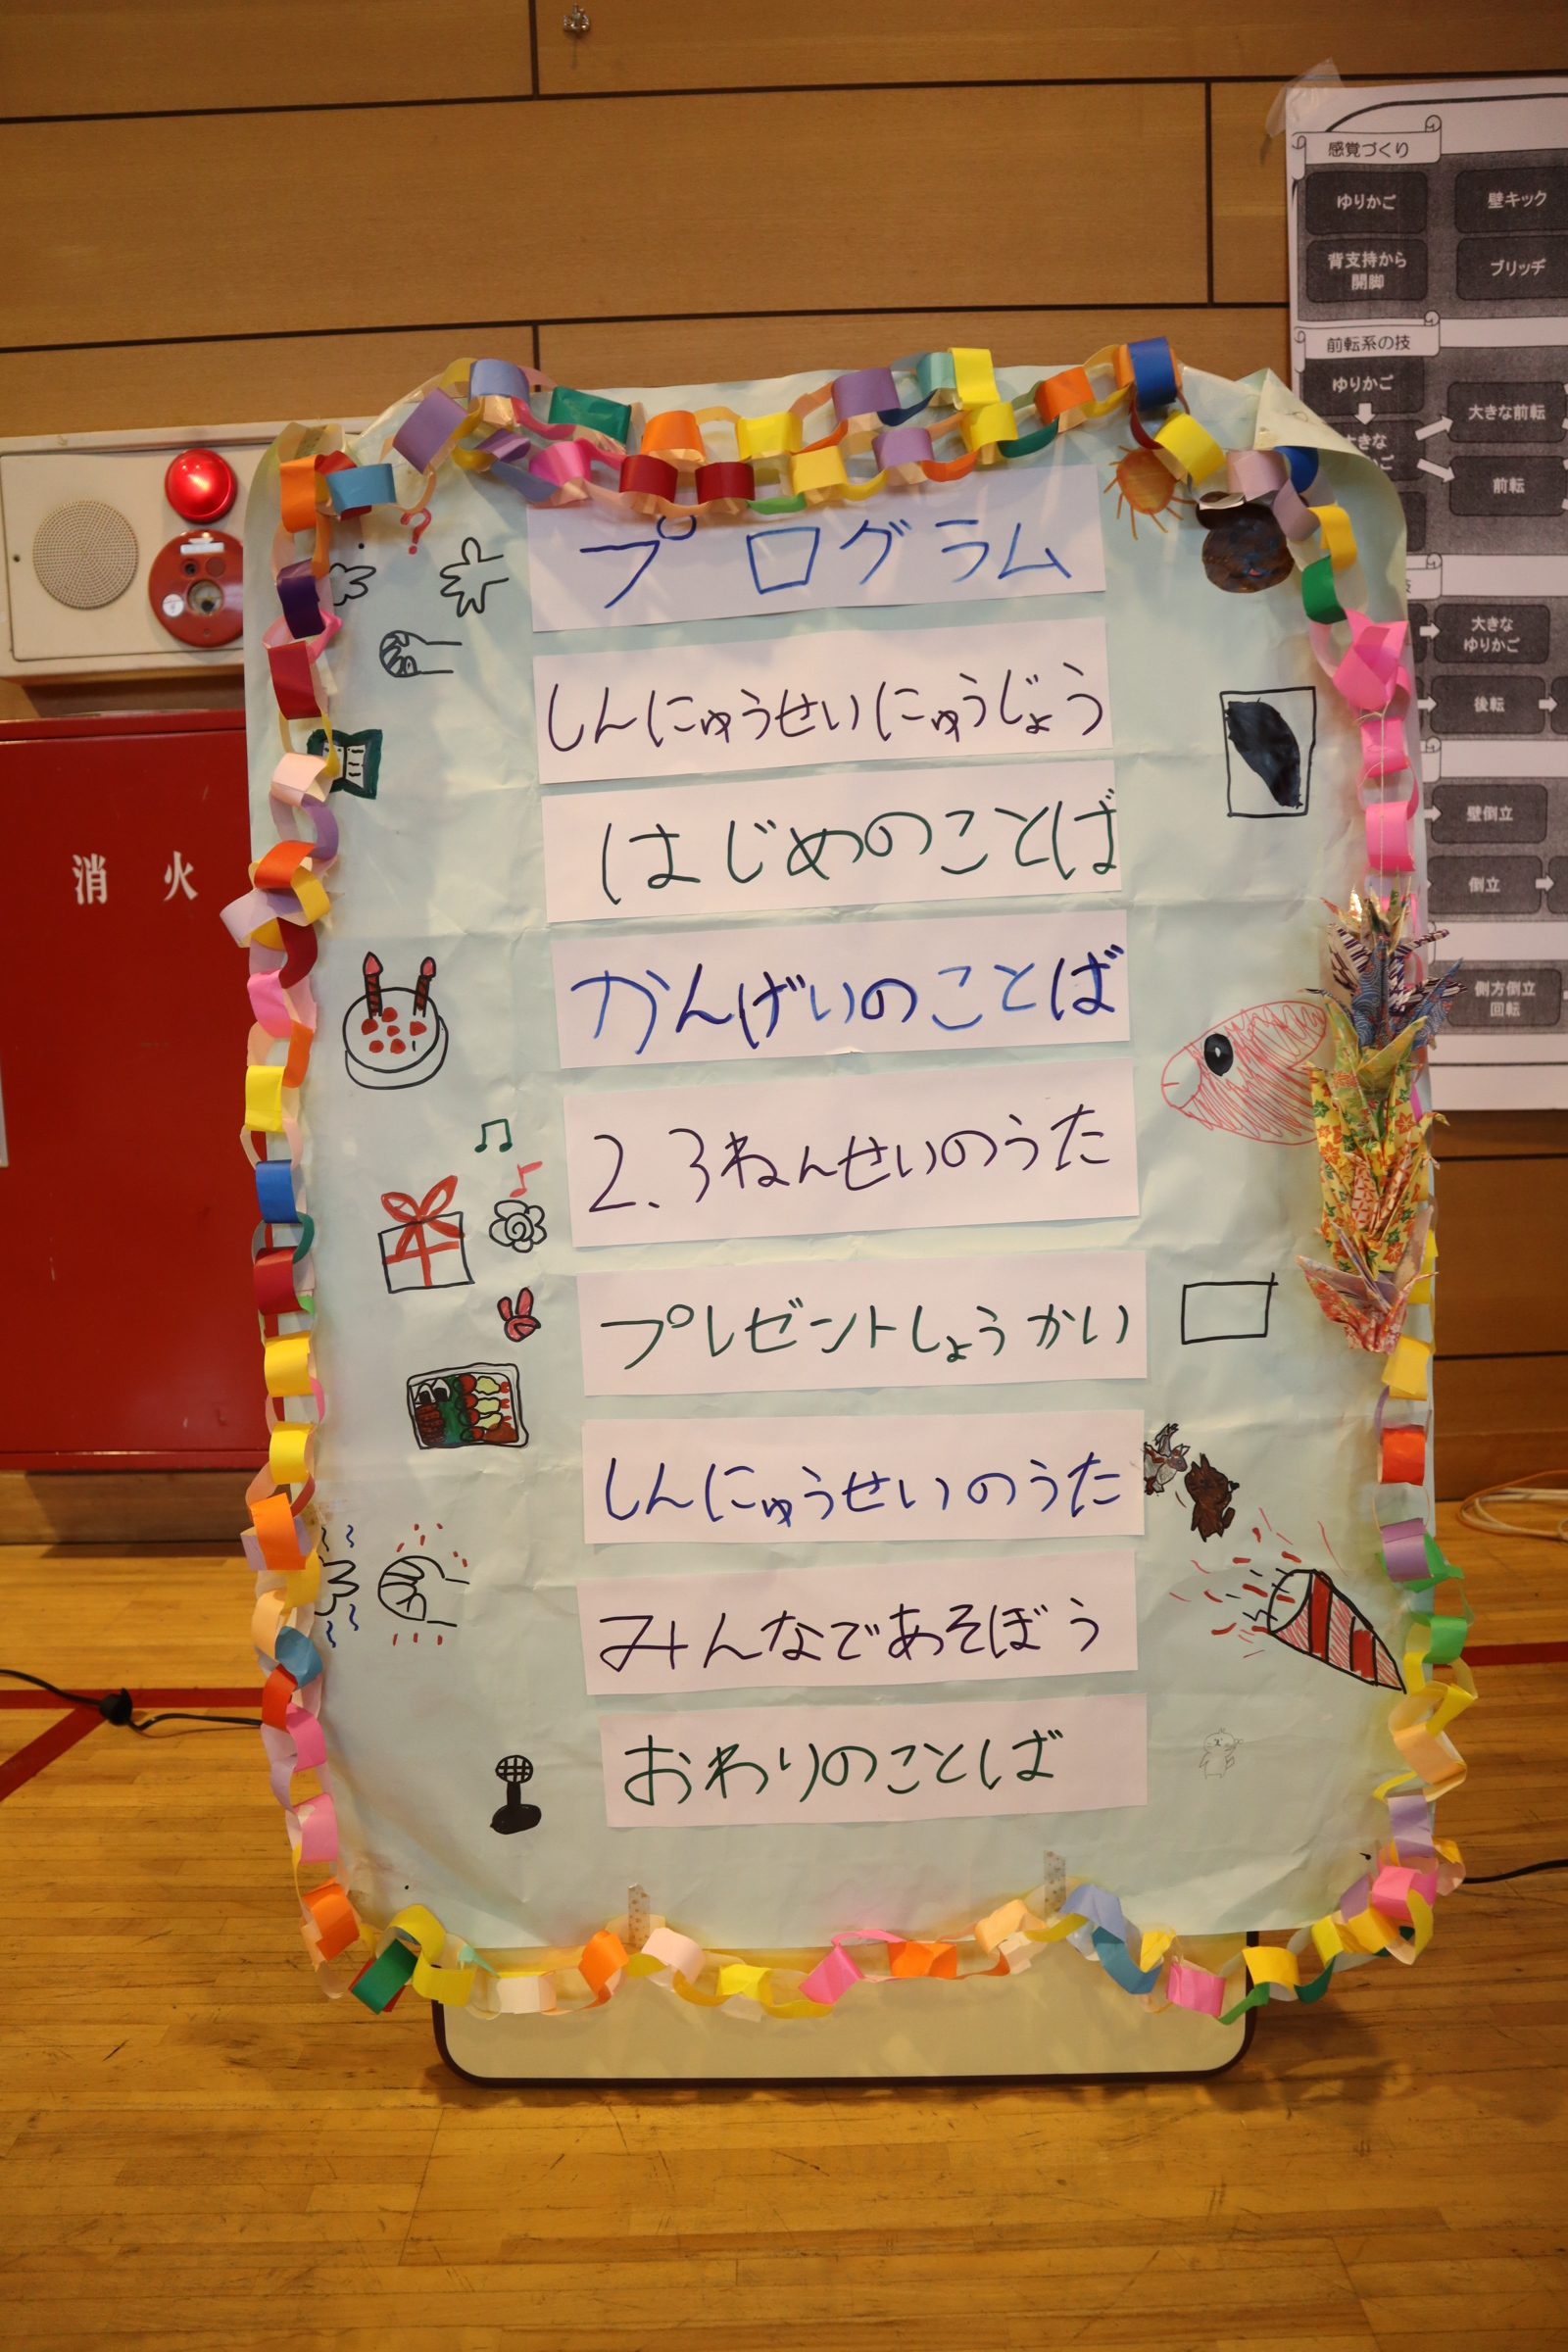 プログラム
しんにゅうせいにゅうじょう
はじめのことば
かんげいのことば
2.3ねんせいのうた
プレゼントしょうかい
しんにゅうせいのうた
みんなであそぼう
おわりのことば
?
消火
感覚づくり
ゆりかご
壁キック
背支持から
開脚
ブリッヂ
前転系の技
ゆりかご
大きな前転
前転
大きな
ゆりかご
後転
壁倒立
倒立
側方倒立
回転